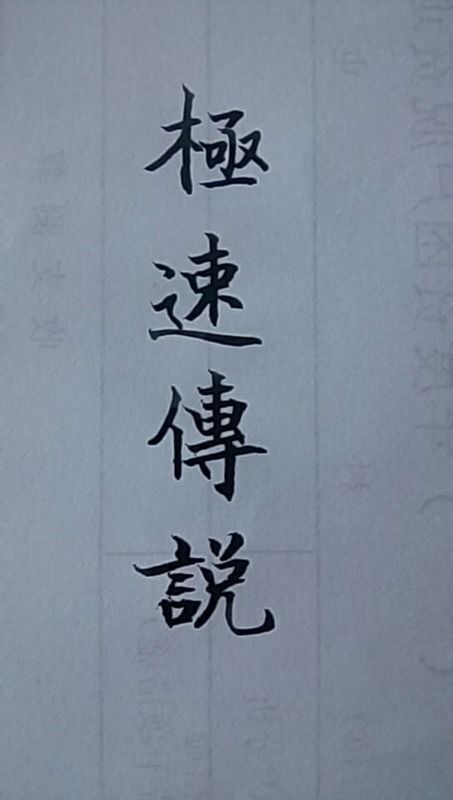 極速傳説